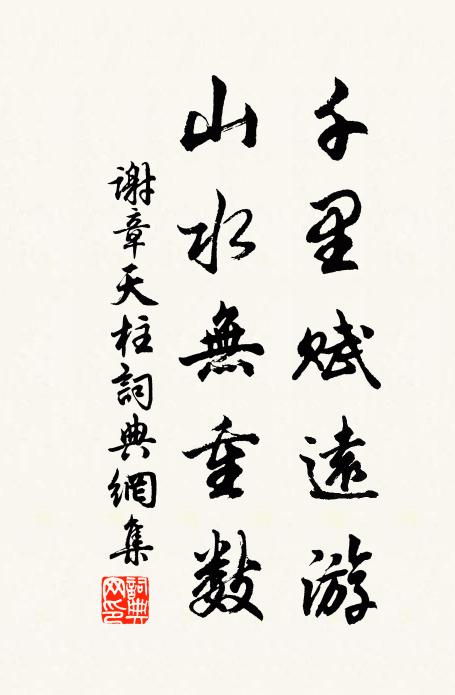 千里賦遠游
山水無重數
謝章天柱詞典網集
詞典網印